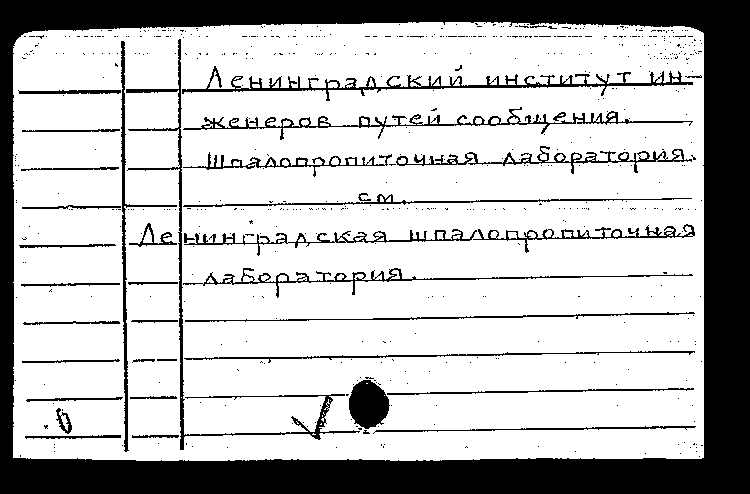 Ленинградский институт ин-
женеров путей сообщения.
Шпалопропиточная лаборатория.
см.
Ленинградская шпалопропиточная
лаборатория.